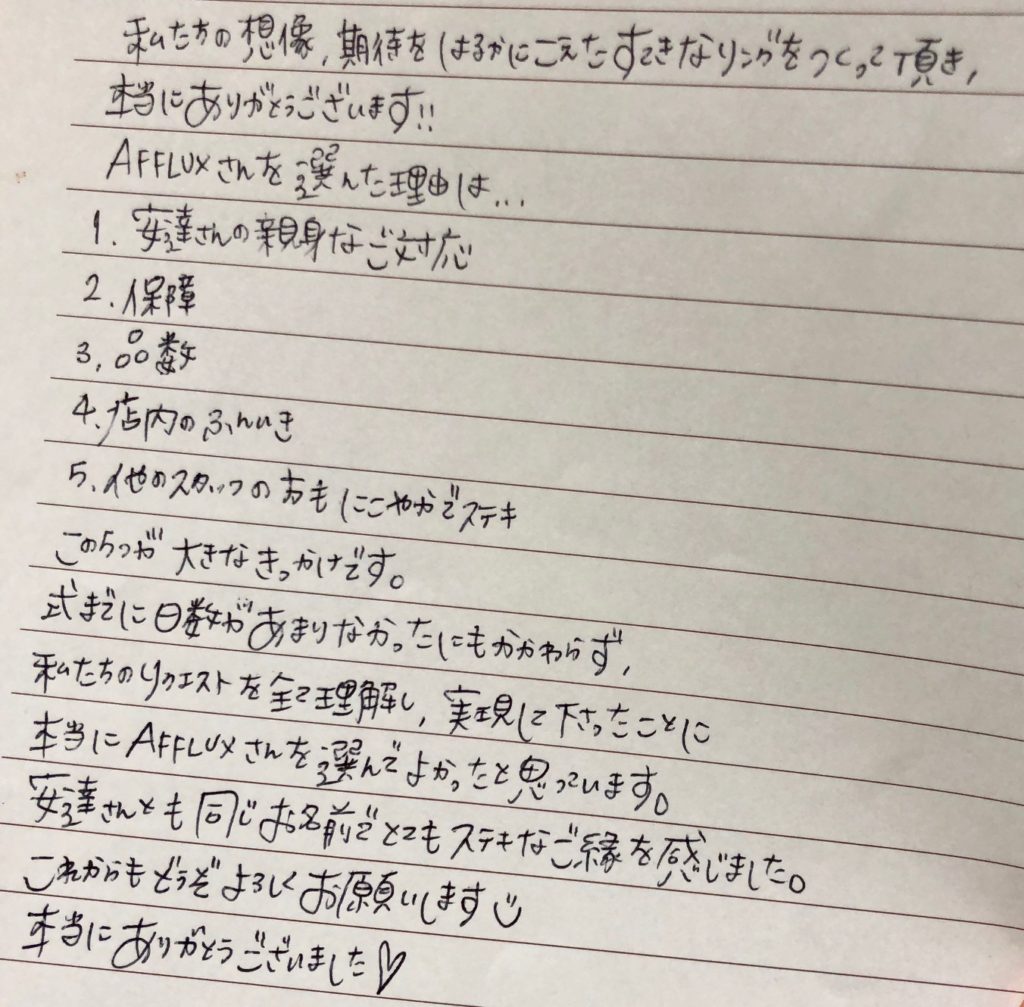 私たちの想像,期待をはるかにこえたすてきなリングをつくって頂き,
本当にありがとうございます!!
AFFLUXさんを選んだ理由は...
1. 安達さんの親身なご対応
2. 保障
3. 品数
4. 店内のふんいき
5. 他のスタッフの方もにこやかでステキ
この5つが大きなきっかけです。
式までに日数があまりなかったにもかかわらず,
私たちのリクエストを全て理解し,実現して下さったことに
本当にAFFLUXさんを選んでよかったと思っています。
安達さんとも同じお名前でとてもステキなご縁を感じました。
これからもどうぞよろしくお願いします☺
本当にありがとうございました♡